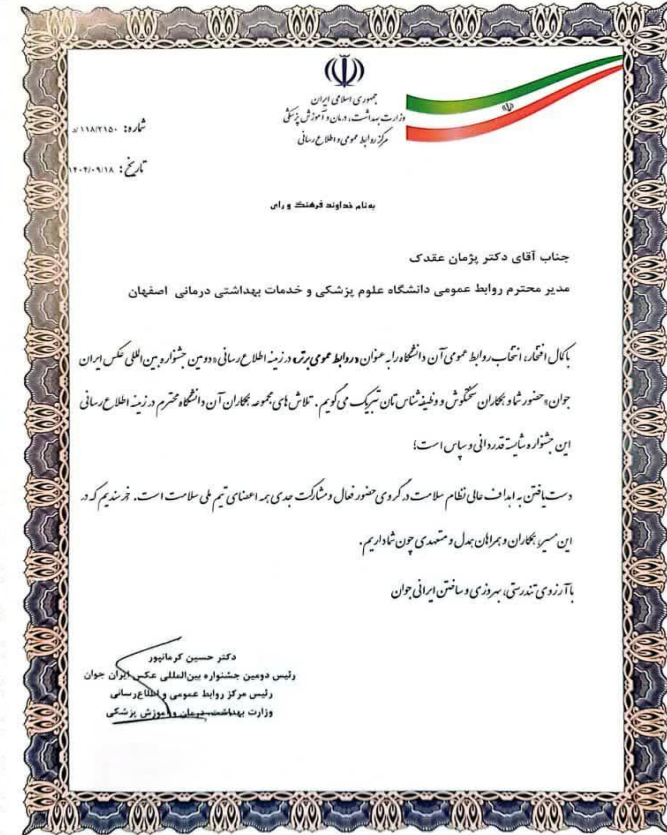 جمهوری اسلامی ایران
وزارت بهداشت، درمان و آموزش پزشکی
مرکز روابط عمومی و اطلاع رسانی
شماره: ۱۱۸/۲۱۵۰/د
تاریخ: ۱۴۰۲/۰۹/۱۸
به نام خداوند فرهنگ و رای
جناب آقای دکتر پژمان عقدک
مدیر محترم روابط عمومی دانشگاه علوم پزشکی و خدمات بهداشتی درمانی اصفهان
با کمال افتخار، انتخاب روابط عمومی آن دانشگاه را به عنوان «روابط عمومی برتر» در زمینه اطلاع رسانی «دومین جشنواره بین المللی عکس ایران
جوان» حضور شما و همکاران سختگوش و وظیفه شناس تان تبریک می گویم. تلاش های مجموعه همکاران آن دانشگاه محترم در زمینه اطلاع رسانی
این جشنواره شایسته قدردانی و سپاس است؛
دست یافتن به اهداف عالی نظام سلامت در گروی حضور فعال و مشارکت جدی همه اعضای تیم ملی سلامت است. خرسندیم که در
این مسیر، همکاران و همراهان همدل و متعهدی چون شما داریم.
با آرزوی تندرستی، بهروزی و ساختن ایرانی جوان
دکتر حسین کرمانپور
رئیس دومین جشنواره بین‌المللی عکس ایران جوان
رئیس مرکز روابط عمومی و اطلاع‌رسانی
وزارت بهداشت، درمان و آموزش پزشکی